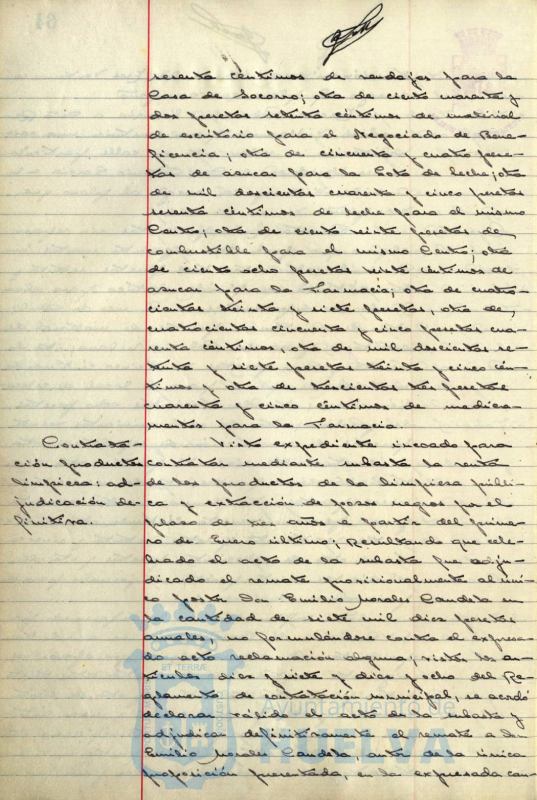 senta céntimos de vendajes para la
Casa de Socorro; otra de ciento cuarenta y
dos pesetas setenta céntimos de material
de escritorio para el Negociado de Bene-
ficencia; otra de cincuenta y cuatro pese-
tas de azucar para la Gota de leche; otra
de mil doscientas cuarenta y cinco pesetas
sesenta céntimos de leche para el mismo
Centro; otra de ciento siete pesetas de
combustible para el mismo Centro; otra
de ciento ocho pesetas veinte céntimos de
azucar para la Farmacia; otra de cuatro-
cientas treinta y siete pesetas, otra de
cuatrocientas cincuenta y cinco pesetas cua-
renta céntimos, otra de mil doscientas se-
tenta y siete pesetas treinta y cinco cén-
timos y otra de trescientas tres pesetas
cuarenta y cinco céntimos de medica-
mentos para la Farmacia.
Contrata-
ción productos
limpieza; ad-
judicación de-
finitiva.
Visto expediente incoado para
contratar mediante subasta la venta
de los productos de la limpieza públi-
ca y extracción de pozos negros por el
plazo de tres años a partir del prime-
ro de Enero último; Resultando que cele-
brado el acto de la subasta fue adju-
dicado el remate provisionalmente al úni-
co postor Don Emilio Morales Candela en
la cantidad de siete mil diez pesetas
anuales, no formulándose contra el expresa-
do acto reclamación alguna; vistos los ar-
tículos diez y siete y diez y ocho del Re-
glamento de contratación municipal, se acordó
declarar válido el acto de la subasta y
adjudicar definitivamente el remate a Don
Emilio Morales Candela, autor de la única
proposición presentada, en la expresada can-
ET TERRÆ
Ayuntamiento de
HUELVA